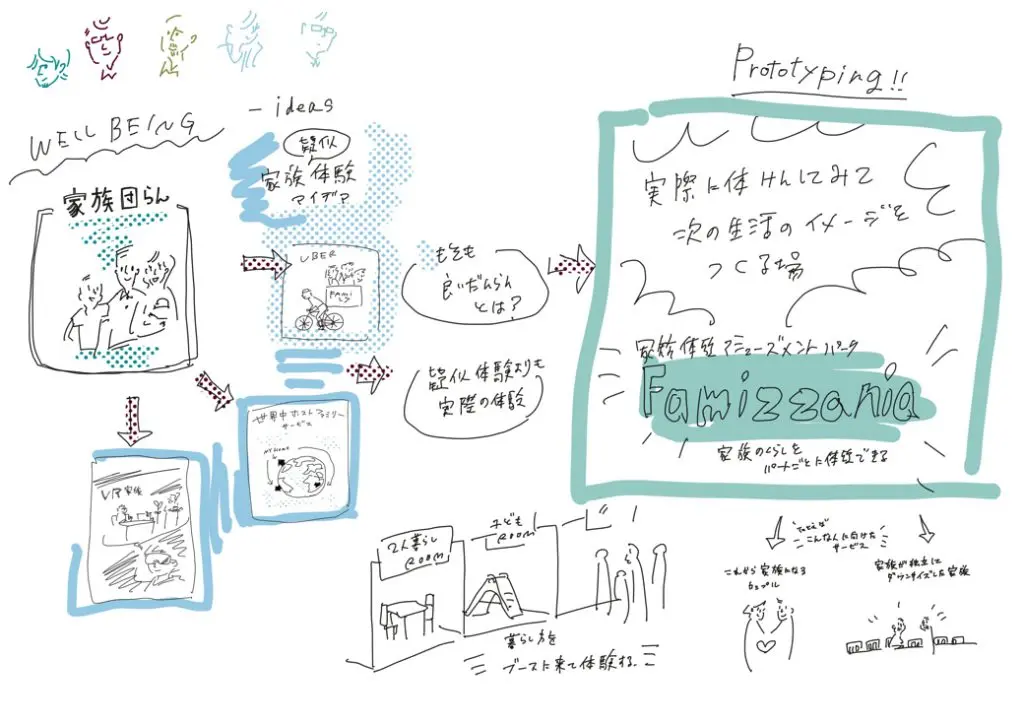 WELL BEING
家族団らん
- ideas
疑似
家族体験
アイデア
UBER
FAMI
世界中ホストファミリー
サービス
MY HOME
VR家族
そもそも
良いだんらん
とは?
疑似体験よりも
実際の体験
Prototyping!!
実際に体けんしてみて
次の生活のイメージを
つくる場
家族体験アミューズメントパーク
Famizzania
家族のくらしを
パターンごとに体験できる
2人暮らし
ROOM
子ども
ROOM
暮らし方を
ブースに来て体験する.
たとえば
こんな人に向けた
サービス
これから家族になる
カップル
家族が独立して
ダウンサイズした家族